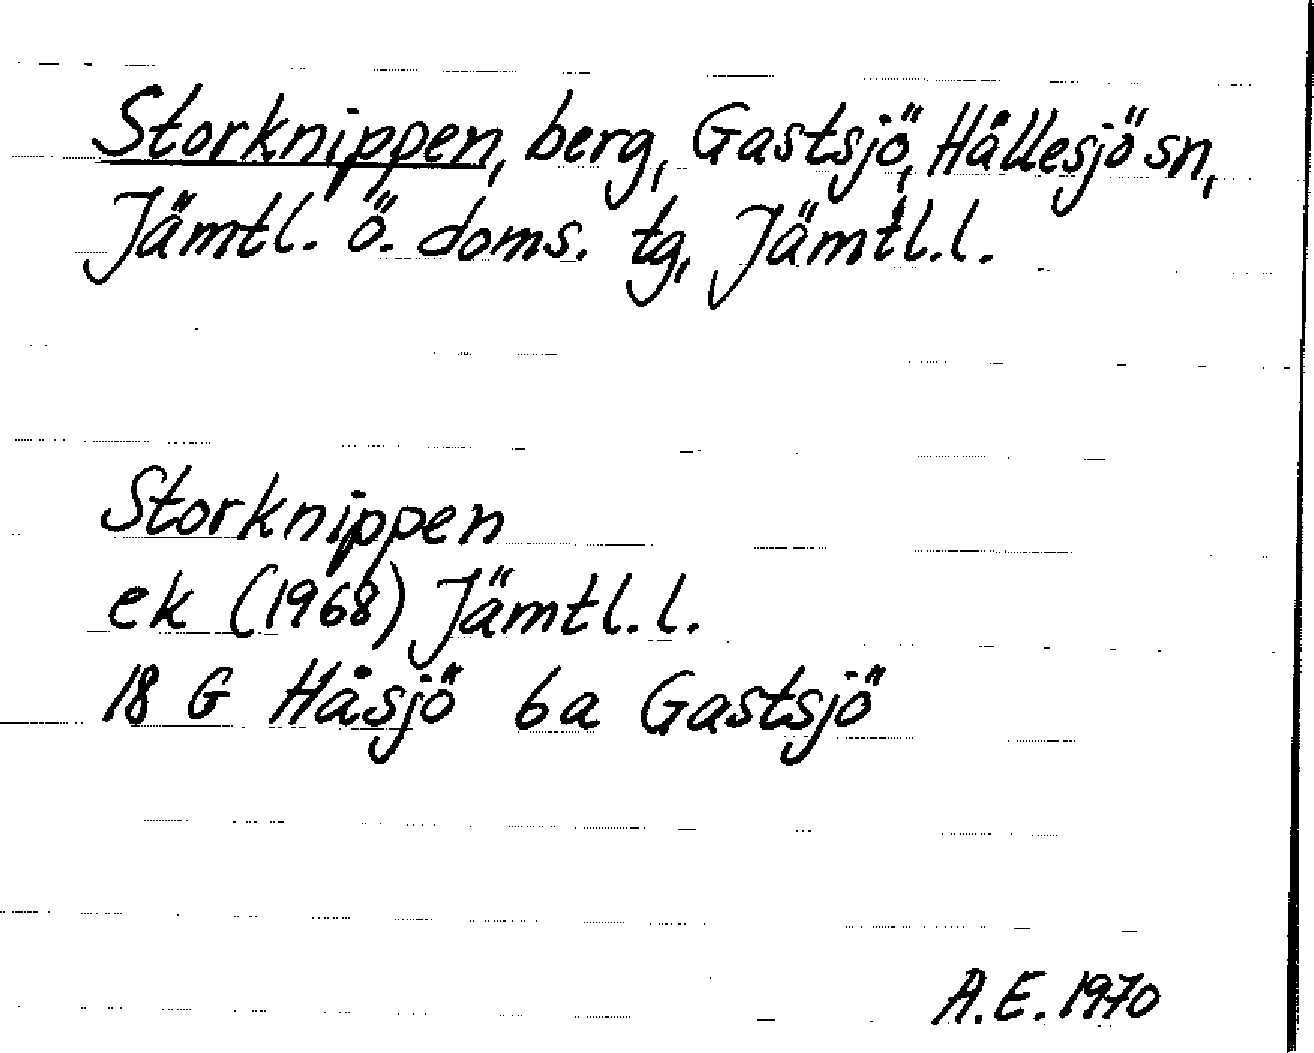 Storknippen, berg, Gastsjö, Hållesjö sn,
Jämtl. ö. doms. tg, Jämtl.l.
Storknippen
ek (1968) Jämtl.l.
18 G Håsjö 6a Gastsjö
A.E. 1970